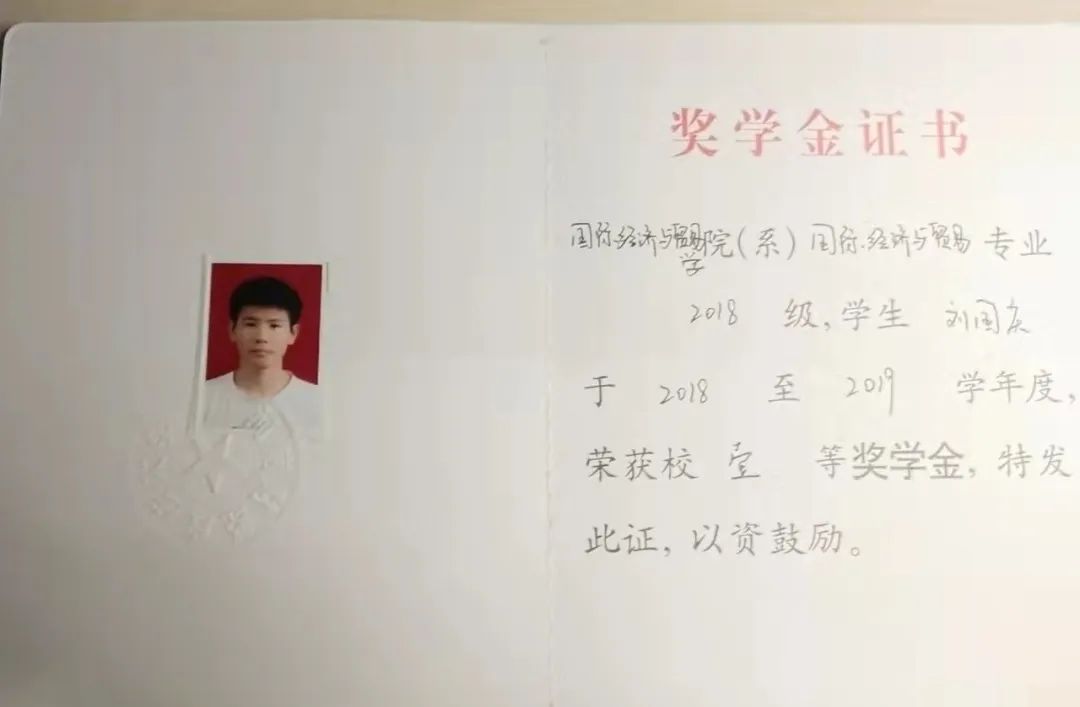 奖学金证书
国际经济与贸易学院(系)国际经济与贸易专业
2018 级,学生 刘国庆
于 2018 至 2019 学年度,
荣获校 壹 等奖学金,特发
此证,以资鼓励。